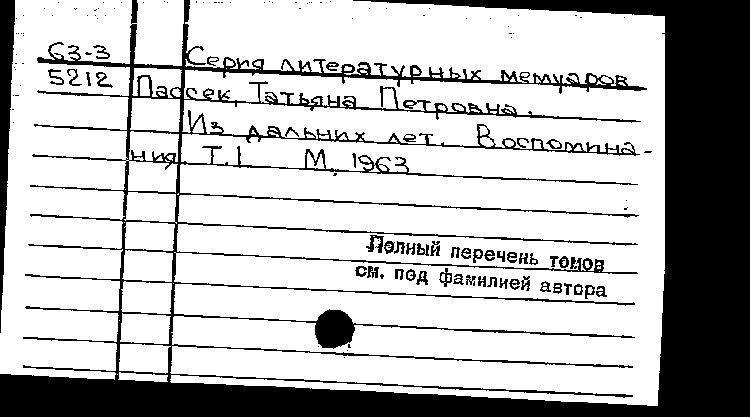 63-3 Серия литературных мемуаров
5212 Пассек, Татьяна Петровна.
Из дальних лет. Воспомина-
ния. Т.1 М., 1963
Полный перечень томов
см. под фамилией автора